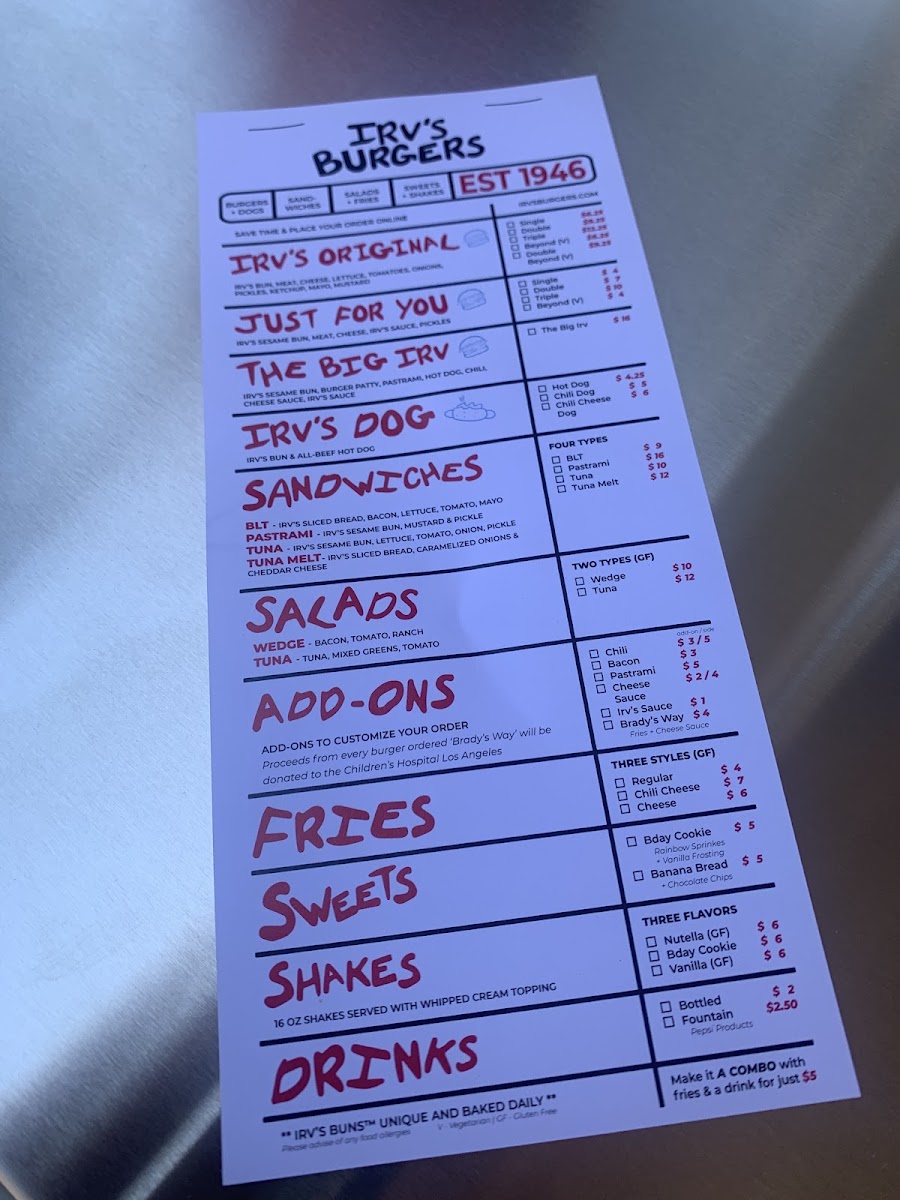 IRV'S
BURGERS
BURGERS + DOGS
SAND-WICHES
SALADS + FRIES
SWEETS + SHAKES
EST 1946
SAVE TIME & PLACE YOUR ORDER ONLINE
IRVSBURGERS.COM
IRV'S ORIGINAL
IRV'S BUN, MEAT, CHEESE, LETTUCE, TOMATOES, ONIONS,
PICKLES, KETCHUP, MAYO, MUSTARD
Single
Double
Triple
Beyond (V)
Double
Beyond (V)
JUST FOR YOU
IRV'S SESAME BUN, MEAT, CHEESE, IRV'S SAUCE, PICKLES
Single $ 4
Double $ 7
Triple $ 10
Beyond (V) $ 4
THE BIG IRV
IRV'S SESAME BUN, BURGER PATTY, PASTRAMI, HOT DOG, CHILI,
CHEESE SAUCE, IRV'S SAUCE
The Big Irv $ 16
IRV'S DOG
IRV'S BUN & ALL-BEEF HOT DOG
Hot Dog $ 4.25
Chili Dog $ 5
Chili Cheese $ 6
Dog
SANDWICHES
BLT - IRV'S SLICED BREAD, BACON, LETTUCE, TOMATO, MAYO
PASTRAMI - IRV'S SESAME BUN, MUSTARD & PICKLE
TUNA - IRV'S SESAME BUN, LETTUCE, TOMATO, ONION, PICKLE
TUNA MELT- IRV'S SLICED BREAD, CARAMELIZED ONIONS &
CHEDDAR CHEESE
FOUR TYPES
BLT $ 9
Pastrami $ 16
Tuna $ 10
Tuna Melt $ 12
SALADS
WEDGE - BACON, TOMATO, RANCH
TUNA - TUNA, MIXED GREENS, TOMATO
TWO TYPES (GF)
Wedge $ 10
Tuna $ 12
ADD-ONS
ADD-ONS TO CUSTOMIZE YOUR ORDER
Proceeds from every burger ordered 'Brady's Way' will be
donated to the Children's Hospital Los Angeles
add-on / side
Chili $ 3 / 5
Bacon $ 3
Pastrami $ 5
Cheese $ 2 / 4
Sauce
Irv's Sauce $ 1
Brady's Way $ 4
Fries + Cheese Sauce
FRIES
THREE STYLES (GF)
Regular $ 4
Chili Cheese $ 7
Cheese $ 6
SWEETS
Bday Cookie $ 5
Rainbow Sprinkes
+ Vanilla Frosting
Banana Bread $ 5
+ Chocolate Chips
SHAKES
16 OZ SHAKES SERVED WITH WHIPPED CREAM TOPPING
THREE FLAVORS
Nutella (GF) $ 6
Bday Cookie $ 6
Vanilla (GF) $ 6
DRINKS
Bottled $ 2
Fountain $2.50
Pepsi Products
** IRV'S BUNS™ UNIQUE AND BAKED DAILY **
Please advise of any food allergies V - Vegetarian | GF - Gluten Free
Make it A COMBO with
fries & a drink for just $5